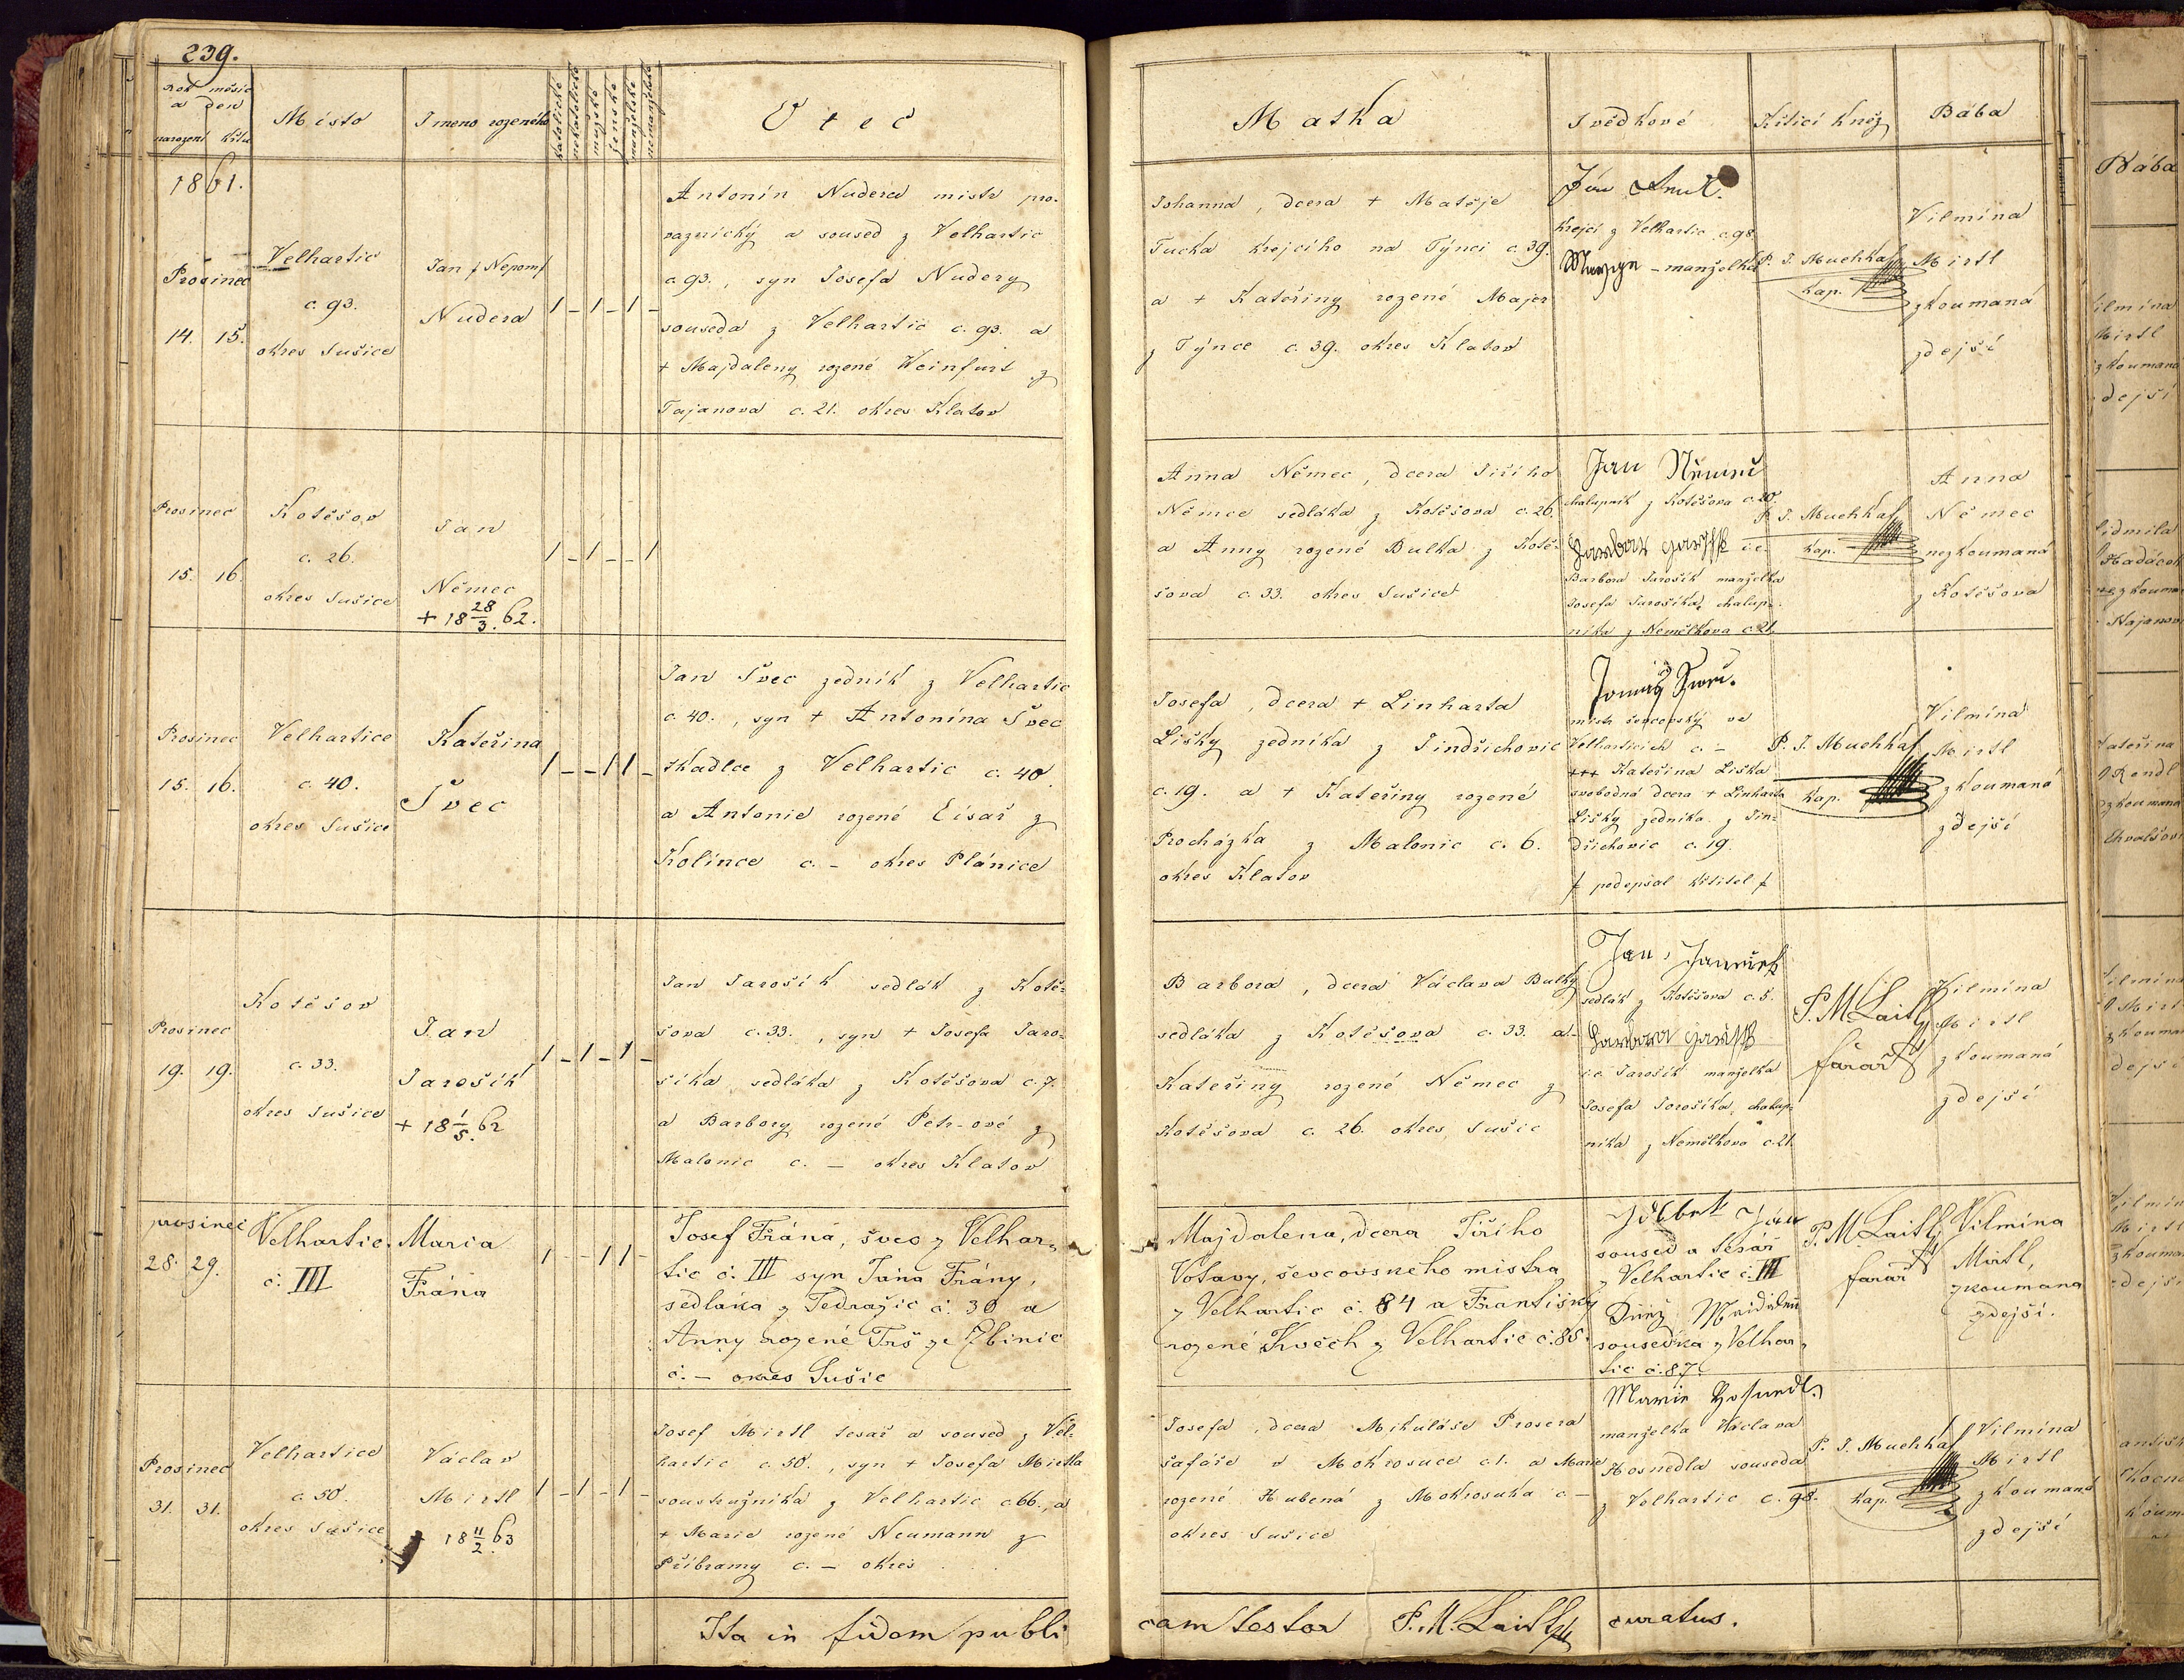 239.
Rok měsíc
a den
narození křtu
Místo
Jmeno rozeného
katolické
nekatolické
mužské
ženské
manželské
nemanželské
Otec
Matka
Svědkové
Křticí kněz
Bába
1861.
Prosinec
14. 15.
Velhartic
c. 93.
okres Sušice
Jan f Nepom f
Nudera
1 - 1 - 1 -
Antonín Nudera mistr pro-
vaznický a soused z Velhartic
c. 93., syn Josefa Nudery
souseda z Velhartic c. 93. a
+ Majdaleny rozené Weinfurt z
Tajanova c. 21. okres Klatov
Johanna, dcera + Matěje
Tucka krejcího na Týnci c. 39.
a + Kateřiny rozené Majer
z Týnce c. 39. okres Klatov
Jan
Krejcí z Velhartic c. 98.
- manželka
P. J. Muchka
kap.
Vilmína
Mirtl
zkoumaná
zdejší
Prosinec
15. 16.
Kotěšov
c. 26.
okres Sušice
Jan
Němec
+ 18 28/3. 62.
1 - 1 - - 1
Anna Němec, dcera Jiřího
Němce sedláka z Kotěšova c. 26.
a Anny rozené Bulka z Kotě-
šova c. 33. okres Sušice
Jan Němec
chalupník z Kotěšova c. 20.
i. e.
Barbora Jarošík manželka
Josefa Jarošíka, chalup-
níka z Nemělkova c. 21.
P. J. Muchka
kap.
Anna
Němec
nezkoumaná
z Kotěšova
Prosinec
15. 16.
Velhartice
c. 40.
okres Sušice
Kateřina
Švec
1 - - 1 1 -
Jan Švec zedník z Velhartic
c. 40., syn + Antonína Švec
tkadlce z Velhartic c. 40.
a Antonie rozené Císař z
Kolince c. - okres Plánice
Josefa, dcera + Linharta
Lišky zedníka z Jindřichovic
c. 19. a + Kateřiny rozené
Procházka z Malonic c. 6.
okres Klatov
mistr ševcovský ve
Velharticích c. -
+++ Kateřina Liška
svobodná dcera + Linharta
Lišky zedníka z Jin-
dřichovic c. 19.
f podepsal křtitel f
P. J. Muchka
kap.
Vilmína
Mirtl
zkoumaná
zdejší
Prosinec
19. 19.
Kotěšov
c. 33.
okres Sušice
Jan
Jarošík
+ 18 1/5. 62
1 - 1 - 1 -
Jan Jarošík sedlák z Kotě-
šova c. 33., syn + Josefa Jaro-
šíka sedláka z Kotěšova c. 7.
a Barbory rozené Petr-ové z
Malonic c. - okres Klatov
Barbora, dcera Václava Bulky
sedláka z Kotěšova c. 33. a
Kateřiny rozené Němec z
Kotěšova c. 26. okres Sušic
Jan
sedlák z Kotěšova c. 5.
i. e. Jarošík manželka
Josefa Jarošíka, chalup-
níka z Nemělkova c. 21.
P. M. Laitl
farář
Vilmína
Mirtl
zkoumaná
zdejší
prosinec
28. 29.
Velhartic.
č. III
Maria
Frána
1 - - 1 1 -
Josef Fráná, švec z Velhar-
tic č. III syn Jána Frány,
sedláka z Tedražic č. 30 a
Anny rozené Trš ze Zbinic
č. - okres Sušic
Majdalena, dcera Jiřího
Votavy, ševcovského mistra
z Velhartic č. 84 a Františky
rozené Kvěch z Velhartic č. 85.
Jan
soused a tesář
z Velhartic č. III
sousedka z Velhar-
tic č. 87.
P. M. Laitl
farář
Vilmína
Mirtl,
zkoumana
zdejší.
Prosinec
31. 31.
Velhartice
c. 50.
okres Sušice
Václav
Mirtl
+ 18 11/2. 63
1 - 1 - 1 -
Josef Mirtl tesař a soused z Vel-
hartic c. 50., syn + Josefa Mirtla
soustružníka z Velhartic c. 66., a
+ Marie rozené Neumann z
Příbramy c. - okres . . .
Josefa, dcera Mikuláše Prosera
šafáře v Mokrosuce c. 1. a Marie
rozené Hubená z Mokrosuka c -
okres Sušice
Marie Hosnedl
manželka Václava
Hosnedla souseda
z Velhartic c. 98.
P. J. Muchka
kap.
Vilmína
Mirtl
zkoumaná
zdejší
Ita in fidem publi
cam testor P. M. Laitl curatus.